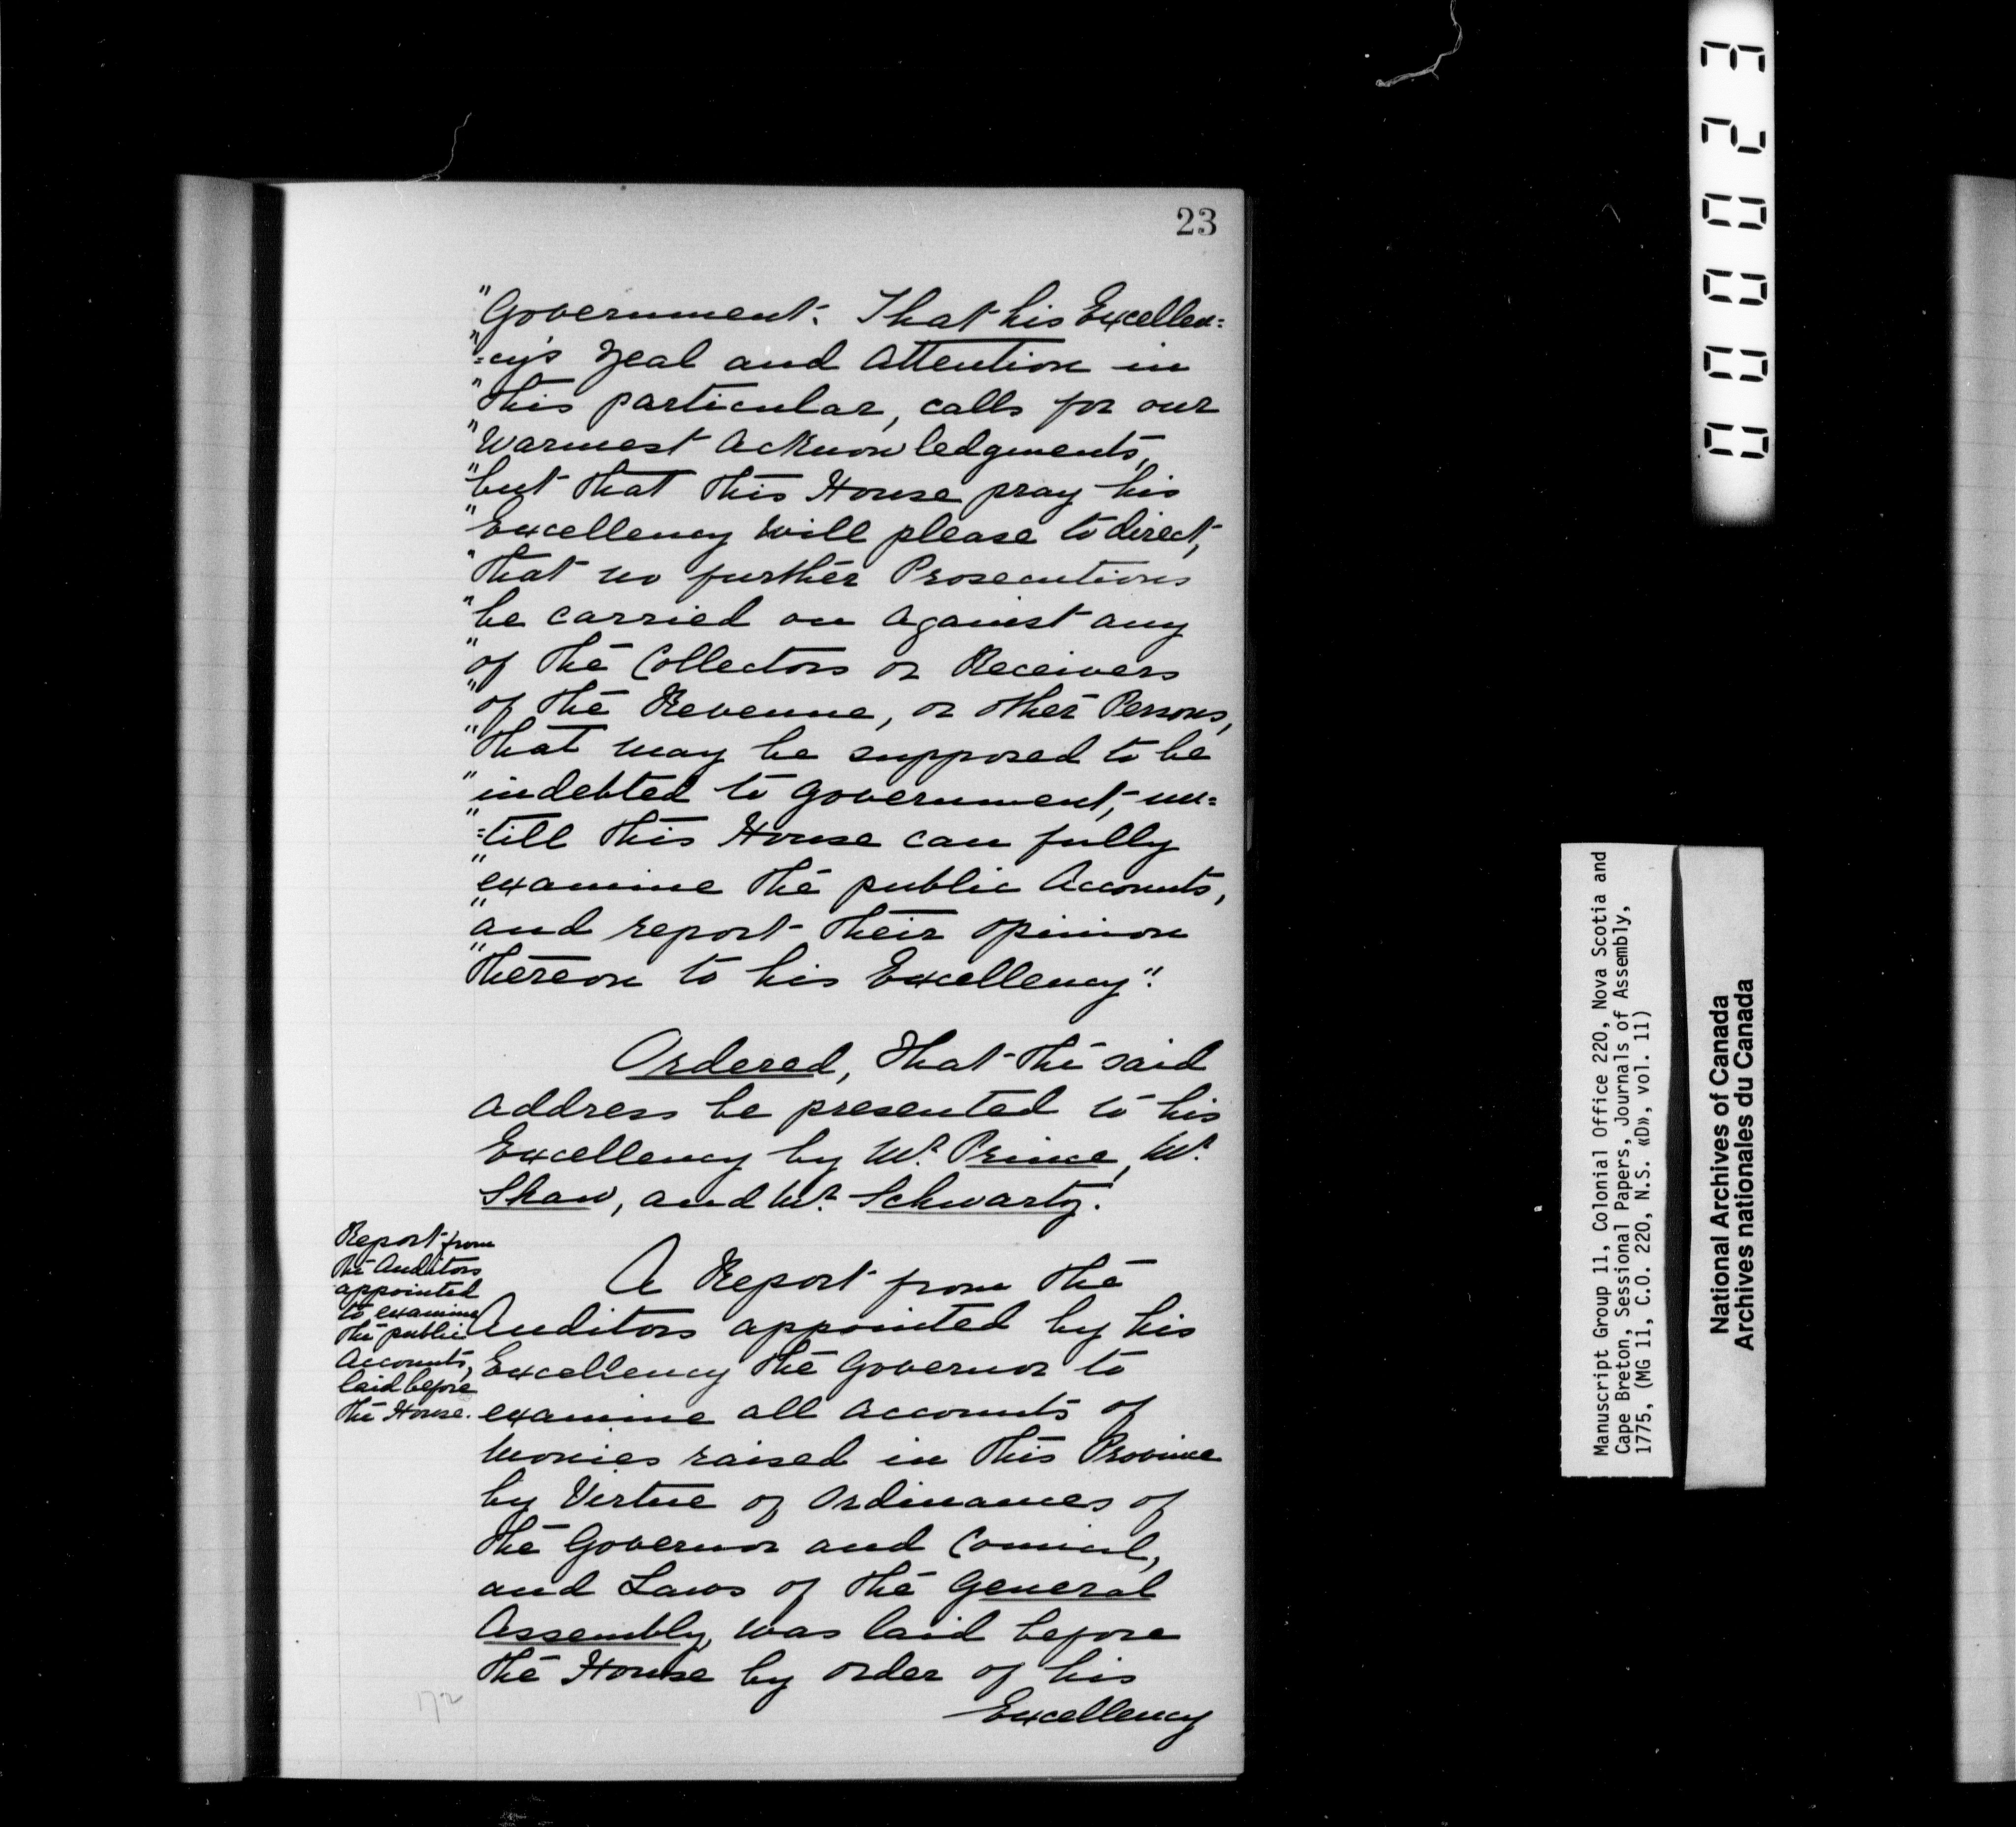 23
"Government. That his Excellen=
"=cy's Zeal and Attention in
"this particular, calls for our
"Warmest Acknowledgments,
"but that this House pray his
"Excellency will please to direct,
"that no further Prosecutions
"be carried on against any
"of the Collectors or Receivers
"of the Revenue, or other Persons,
"that may be supposed to be
"indebted to Government, un=
"=till this House can fully
"examine the public Accounts,
"and report their opinion
"thereon to his Excellency".
Ordered, that the said
address be presented to his
Excellency by Mr. Prince, Mr.
Shaw, and Mr. Schwartz.
Report from
the Auditors
appointed
to examine
the public
Accounts,
laid before
the House.
A Report from the
Auditors appointed by his
Excellency the Governor to
examine all accounts of
Monies raised in this Province
by Virtue of Ordinances of
the Governor and Council,
and Laws of the General
Assembly, was laid before
the House by order of his
Excellency
172
000023
Manuscript Group 11, Colonial Office 220, Nova Scotia and
Cape Breton, Sessional Papers, Journals of Assembly,
1775, (MG 11, C.O. 220, N.S. «D», vol. 11)
National Archives of Canada
Archives nationales du Canada